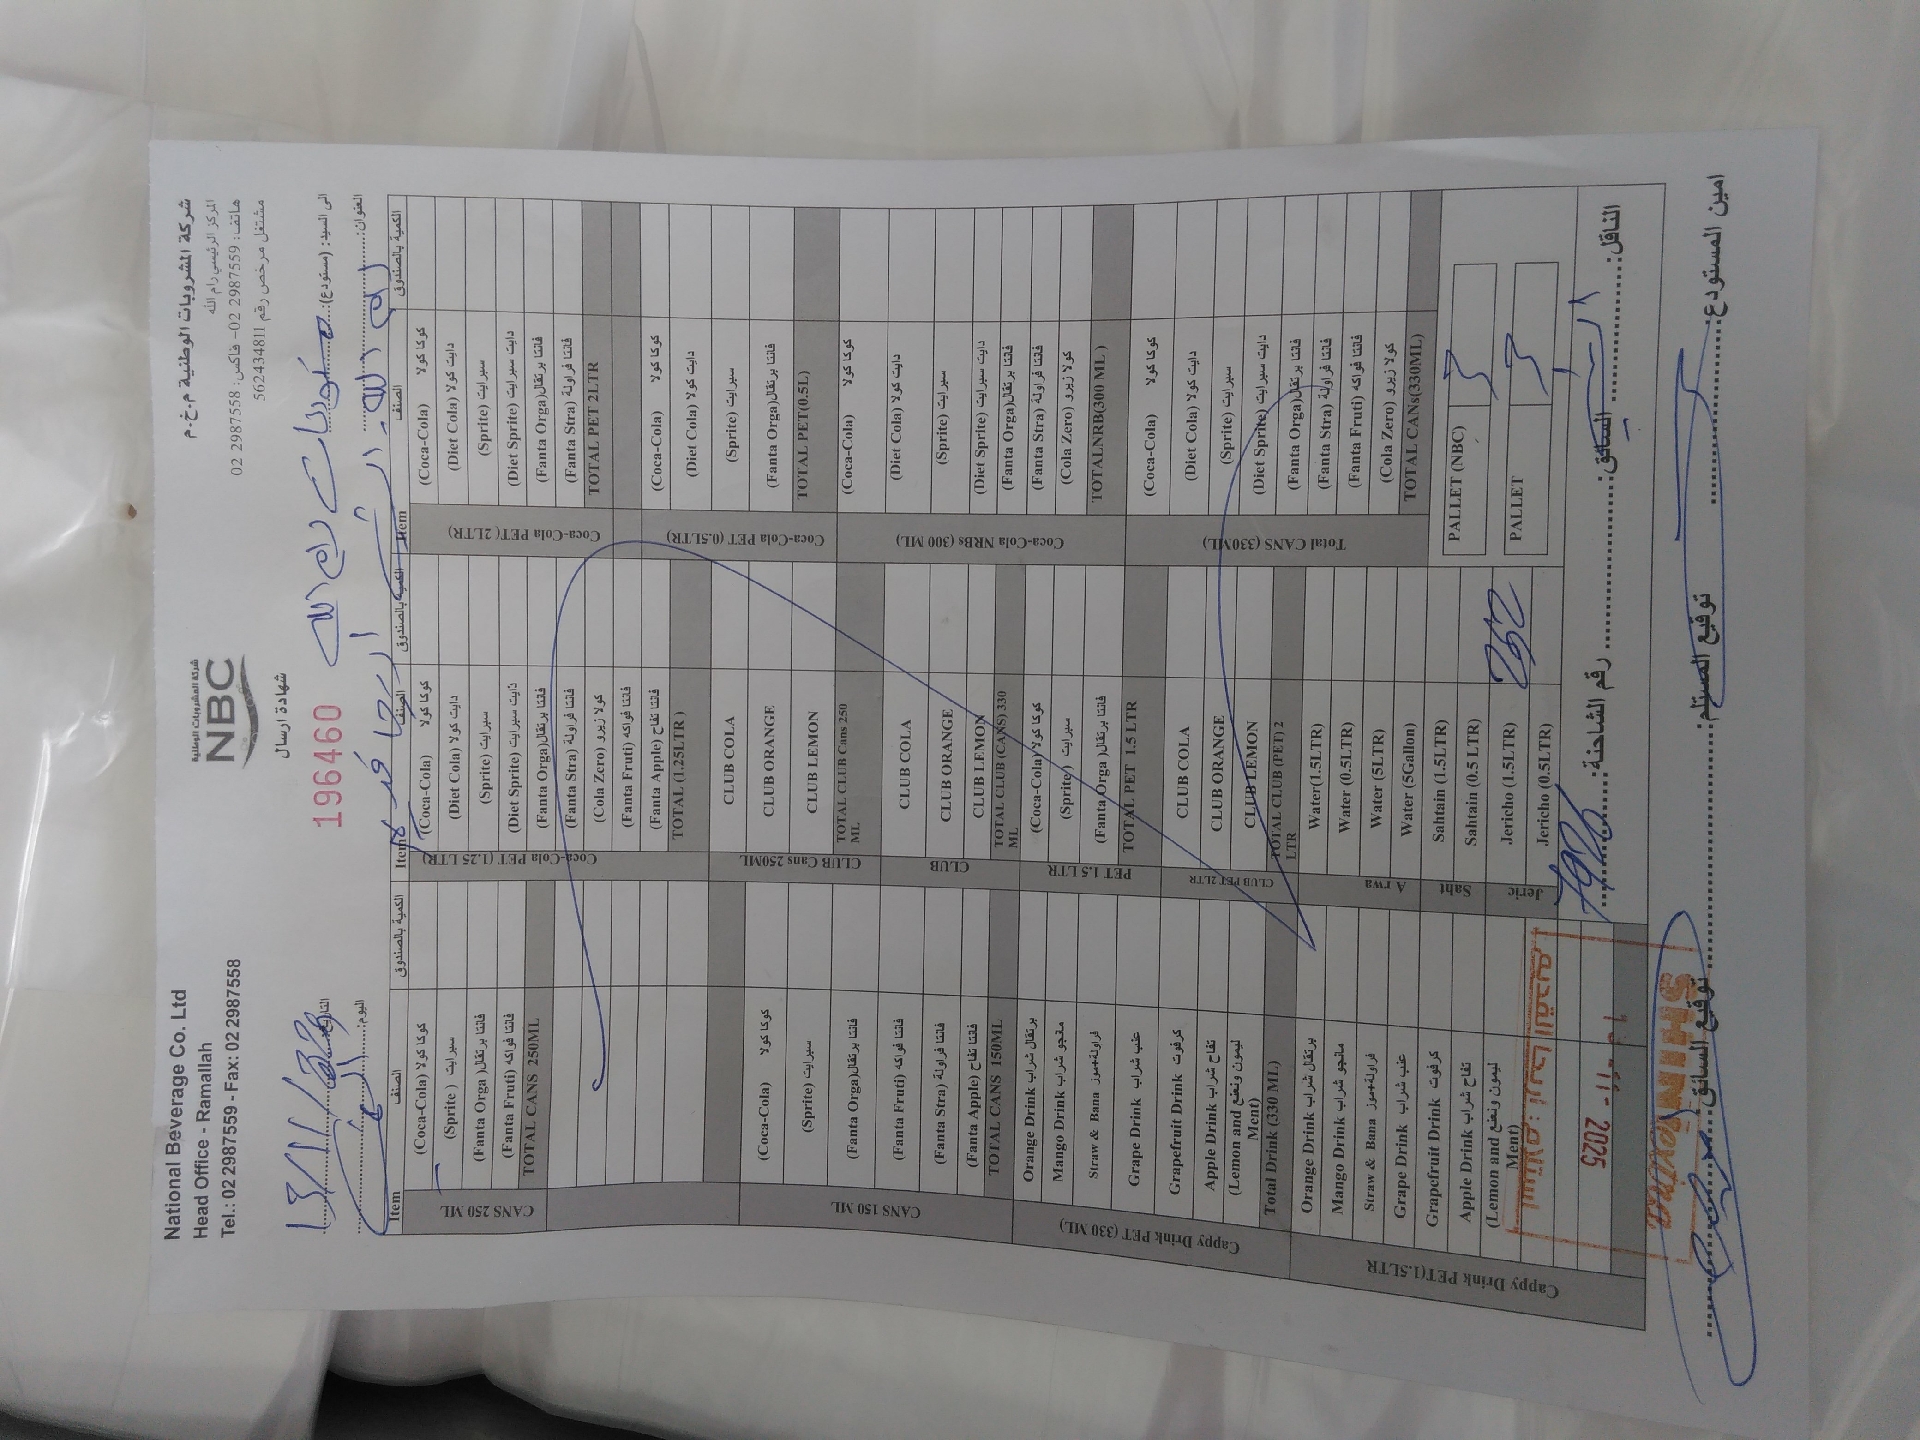 National Beverage Co. Ltd
Head Office - Ramallah
Tel.: 02 2987559 - Fax: 02 2987558
شركة المشروبات الوطنية
NBC
شهادة ارسال
196460
شركة المشروبات الوطنية م.خ.م
المركز الرئيسي رام الله
هاتف: 2987559 02- فاكس: 2987558 02
مشتغل مرخص رقم 562434811
الى السيد: (مستودع):
رام الله
العنوان:
التاريخ:
اليوم:
Item الصنف الكمية بالصندوق
CANS 250 ML
(Coca-Cola) كوكا كولا
(Sprite) سبرايت
(Fanta Orga) فانتا برتقال
(Fanta Fruti) فانتا فواكه
TOTAL CANS 250ML
CANS 150 ML
(Coca-Cola) كوكا كولا
(Sprite) سبرايت
(Fanta Orga) فانتا برتقال
(Fanta Fruti) فانتا فواكه
(Fanta Stra) فانتا فراولة
(Fanta Apple) فانتا تفاح
TOTAL CANS 150ML
Cappy Drink PET (330 ML)
Orange Drink برتقال شراب
Mango Drink مانجو شراب
Straw & Bana فراولة+موز
Grape Drink عنب شراب
Grapefruit Drink كرفوت
Apple Drink تفاح شراب
(Lemon and ليمون ونعنع
Ment)
Total Drink (330 ML)
Cappy Drink PET(1.5LTR)
Orange Drink برتقال شراب
Mango Drink مانجو شراب
Straw & Bana فراولة+موز
Grape Drink عنب شراب
Grapefruit Drink كرفوت
Apple Drink تفاح شراب
(Lemon and ليمون ونعنع
Ment)
Item الصنف الكمية بالصندوق
Coca-Cola PET (1.25 LTR)
(Coca-Cola) كوكا كولا
(Diet Cola) دايت كولا
(Sprite) سبرايت
(Diet Sprite) دايت سبرايت
(Fanta Orga) فانتا برتقال
(Fanta Stra) فانتا فراولة
(Cola Zero) كولا زيرو
(Fanta Fruti) فانتا فواكه
(Fanta Apple) فانتا تفاح
TOTAL (1.25LTR )
CLUB Cans 250ML
CLUB COLA
CLUB ORANGE
CLUB LEMON
TOTAL CLUB Cans 250
ML
CLUB
CLUB COLA
CLUB ORANGE
CLUB LEMON
TOTAL CLUB (CANS) 330
ML
PET 1.5 LTR
(Coca-Cola) كوكا كولا
(Sprite) سبرايت
(Fanta Orga) فانتا برتقال
TOTAL PET 1.5 LTR
CLUB PET 2LTR
CLUB COLA
CLUB ORANGE
CLUB LEMON
TOTAL CLUB (PET) 2
LTR
A rwa
Water(1.5LTR)
Water (0.5LTR)
Water (5LTR)
Water (5Gallon)
Saht
Sahtain (1.5LTR)
Sahtain (0.5 LTR)
Jeric
Jericho (1.5LTR)
Jericho (0.5LTR)
Item الصنف الكمية بالصندوق
Coca-Cola PET (2LTR)
(Coca-Cola) كوكا كولا
(Diet Cola) دايت كولا
(Sprite) سبرايت
(Diet Sprite) دايت سبرايت
(Fanta Orga) فانتا برتقال
(Fanta Stra) فانتا فراولة
TOTAL PET 2LTR
Coca-Cola PET (0.5LTR)
(Coca-Cola) كوكا كولا
(Diet Cola) دايت كولا
(Sprite) سبرايت
(Fanta Orga) فانتا برتقال
TOTAL PET(0.5L)
Coca-Cola NRBs (300 ML)
(Coca-Cola) كوكا كولا
(Diet Cola) دايت كولا
(Sprite) سبرايت
(Diet Sprite) دايت سبرايت
(Fanta Orga) فانتا برتقال
(Fanta Stra) فانتا فراولة
(Cola Zero) كولا زيرو
TOTALNRB(300 ML )
Total CANS (330ML)
(Coca-Cola) كوكا كولا
(Diet Cola) دايت كولا
(Sprite) سبرايت
(Diet Sprite) دايت سبرايت
(Fanta Orga) فانتا برتقال
(Fanta Stra) فانتا فراولة
(Fanta Fruti) فانتا فواكه
(Cola Zero) كولا زيرو
TOTAL CANs(330ML)
PALLET (NBC)
PALLET
الناقل: السائق: رقم الشاحنة:
2025
امين المستودع: توقيع المستلم: توقيع السائق: